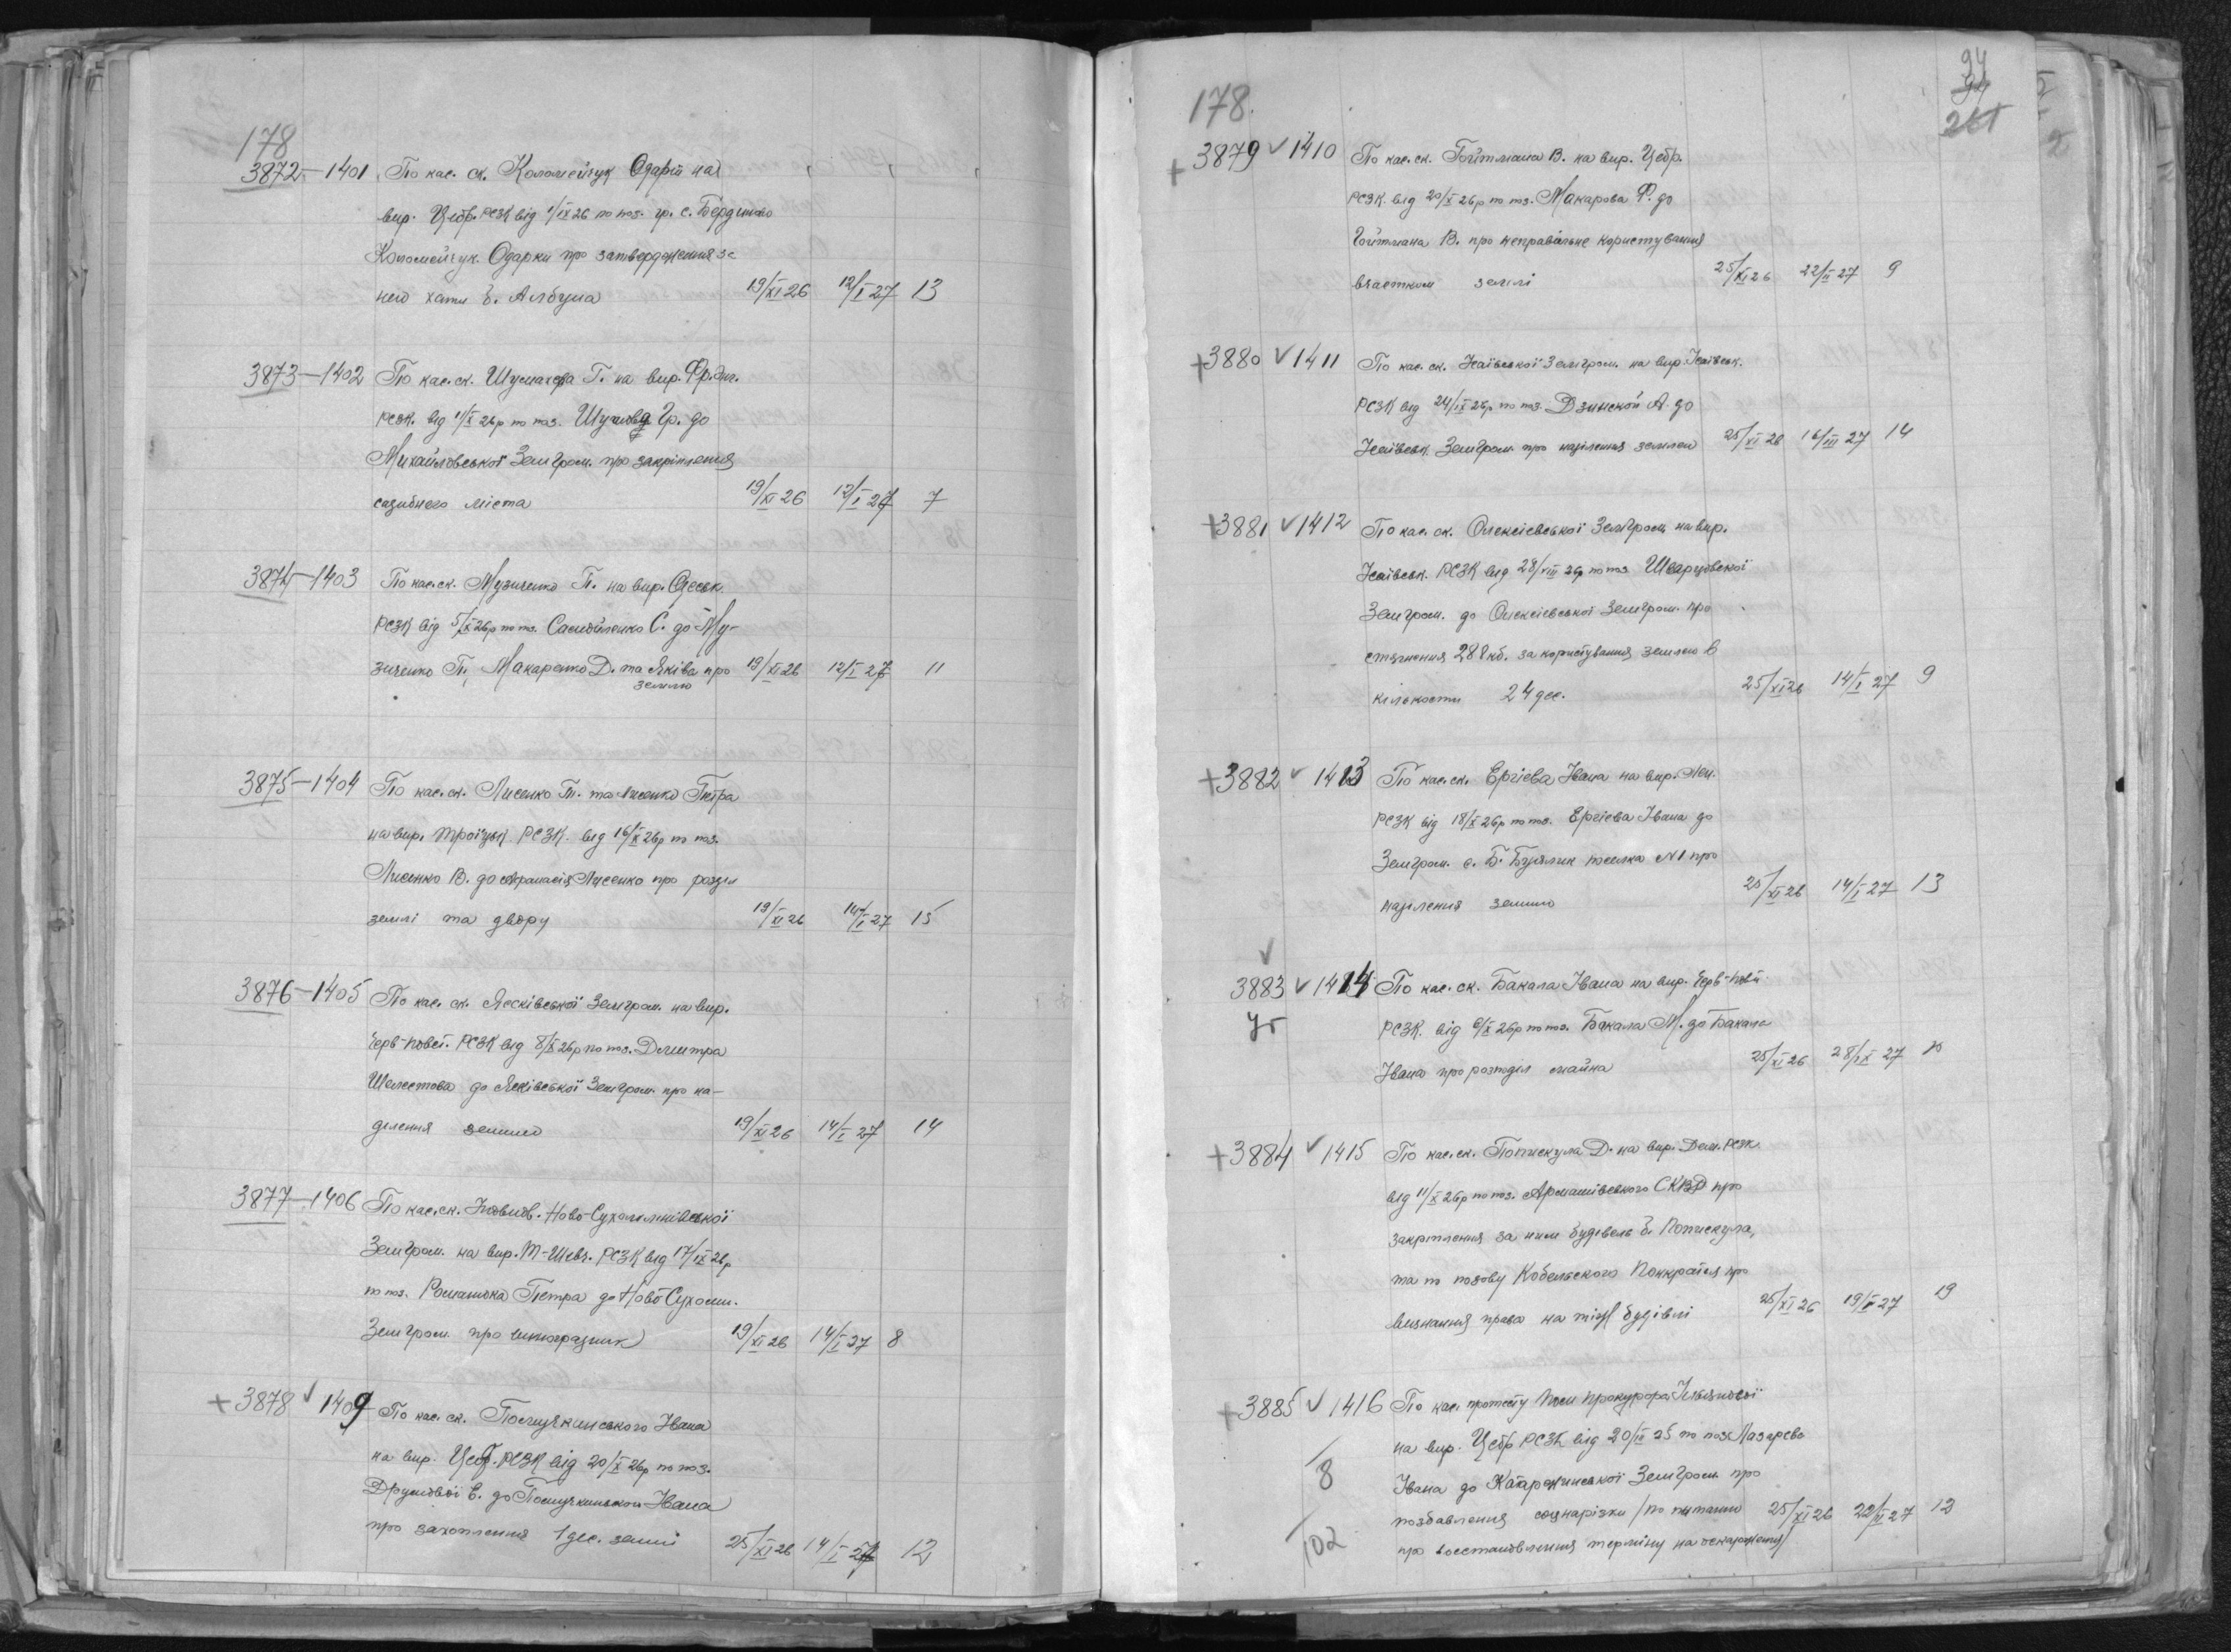 178
3872 — 1401 По кас. ск. Коломейчук Одарки на
вир. Цебр. РСЗК від 1/IX 26 по поз. гр. с.
Коломейчук Одарки про затвердження за
нею хати б. Албула 19/XI 26 12/I 27 13
3873 — 1402 По кас. ск. Шумахера Г. на вир. Фр. Энг.
РСЗК. від 11/X 26р по поз. Гр. до
Михайловської Земгром. про закріплення
садибного міста 19/XI 26 12/I 27 7
3874 — 1403 По кас. ск. Музиченко П. на вир. Одеськ.
РСЗК від 5/X 26р по поз. Самойленко С. до Му-
зиченко П., Макаренко Д. та Яківа про 19/XI 26 12/I 27 11
землю
3875 — 1404 По кас. ск. Лисенко П. та Лисенко Петра
на вир. Троїцьк. РСЗК. від 16/X 26р по поз.
Лисенко В. до Лисенко про розділ
землі та двору 19/XI 26 14/I 27 15
3876 — 1405 По кас. ск. Ясківської Земгром. на вир.
Черв-Повст. РСЗК від 8/X 26р по поз. Дмитра
Шелестова до Ясківської Земгром. про на-
ділення землею 19/XI 26 14/I 27 14
3877 — 1406 По кас. ск. Ново-
Земгром. на вир. Т-Шевч. РСЗК від 17/IX 26р
по поз. Романюка Петра до Ново-Сухомл.
Земгром. про виноградник 19/XI 26 14/I 27 8
+ 3878 ✓ 1409 По кас. ск. Івана
на вир. Цебр. РСЗК від 20/X 26р по поз.
Е. до Івана
про захоплення 1 дес. землі 25/XI 26 14/I 27 12
178.
94
261
+ 3879 ✓ 1410 По кас. ск. Гойтмана В. на вир. Цебр.
РСЗК. від 20/X 26р по поз. Макарова Ф. до
Гойтмана В. про неправильне користування
участком землі 25/XI 26 22/II 27 9
+ 3880 ✓ 1411 По кас. ск. Ісаївської Земгром. на вир. Ісаївськ.
РСЗК від 24/IX 26р по поз. Дзинской А. до
Ісаївськ. Земгром. про наділення землею 25/XI 26 16/III 27 14
+ 3881 ✓ 1412 По кас. ск. Олексієвської Земгром. на вир.
Ісаївськ. РСЗК від 28/VIII 26р по поз. Шварцовської
Земгром. до Олексієвської Земгром. про
стягнення 288 кб. за користування землею в
кількости 24 дес. 25/XI 26 14/I 27 9
+ 3882 ✓ 1413 По кас. ск. Ергієва Івана на вир. Лен.
РСЗК від 18/X 26р по поз. Ергієва Івана до
Земгром. с. Б. Буялик №1 про
наділення землею 25/XI 26 14/I 27 13
✓
3883 ✓ 1414 По кас. ск. Бакала Івана на вир. Черв-Пов.
РСЗК. від 6/X 26р по поз. Бакала М. до Бакала
Івана про розподіл майна 25/XI 26 28/IX 27
+ 3884 ✓ 1415 По кас. ск. Попискула Д. на вир. Дем. РСЗК.
від 11/X 26р по поз. про
закріплення за ним будівель б. Попискула,
та по позову Кобельского Понкратія про
визнання права на тіж будівлі 25/XI 26 19/II 27 19
+ 3885 ✓ 1416 По кас. протесту Пом Прокурора
на вир. Цебр РСЗК від 20/IX 25 по поз Лазарєва
8
Івана до Катаржинської Земгром. про
позбавлення соцнарізки /по питанню 25/XI 26 22/II 27 12
102
про восстановлення терміну на оскарження/